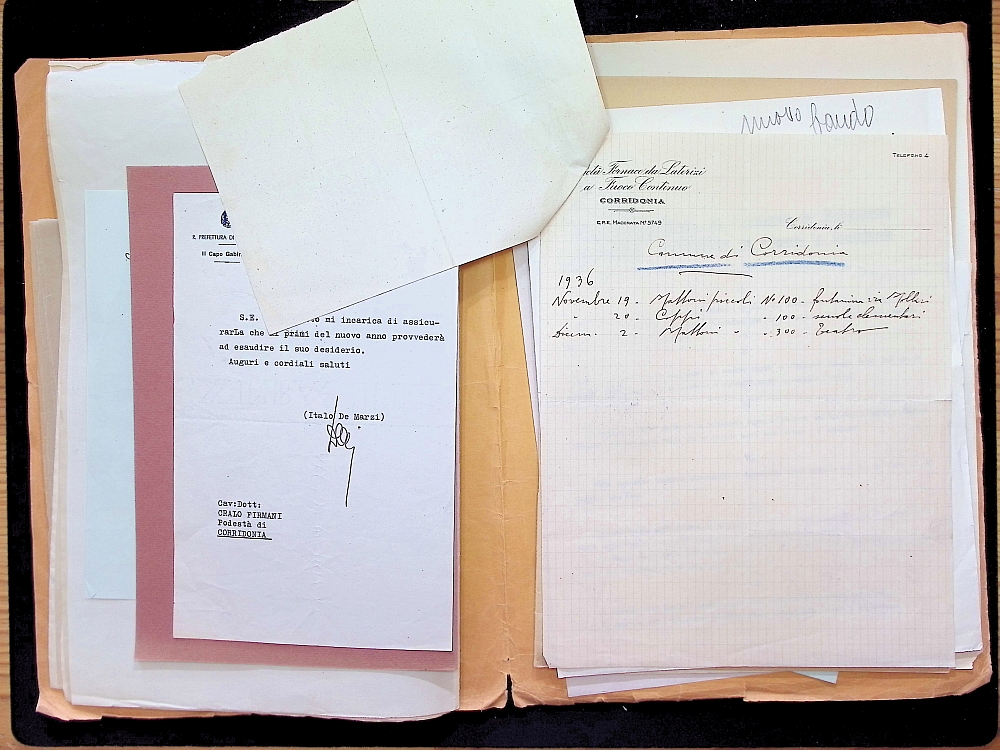 R. PREFETTURA DI
Il Capo Gabin
S.E. mi incarica di assicu-
rarLa che primi del nuovo anno provvederà
ad esaudire il suo desiderio.
Auguri e cordiali saluti
(Italo De Marzi)
Cav:Dott:
CRALO FIRMANI
Podestà di
CORRIDONIA
nuovo bando
TELEFONO 4
cietà Fornace da Laterizi
a Fuoco Continuo
CORRIDONIA
C.P.E. MACERATA Nº 5749
Corridonia, li
Comune di Corridonia
1936
Novembre 19 - Mattoni piccoli Nº 100 - fontanina via
" 20 - Coppi " 100 - scuole elementari
Dicem. 2 - Mattoni " " 300 - Teatro